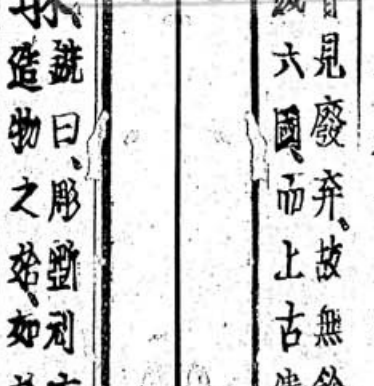 見廢弃、故無
六國、而上古
説曰、彫斲刓
造物之始、如